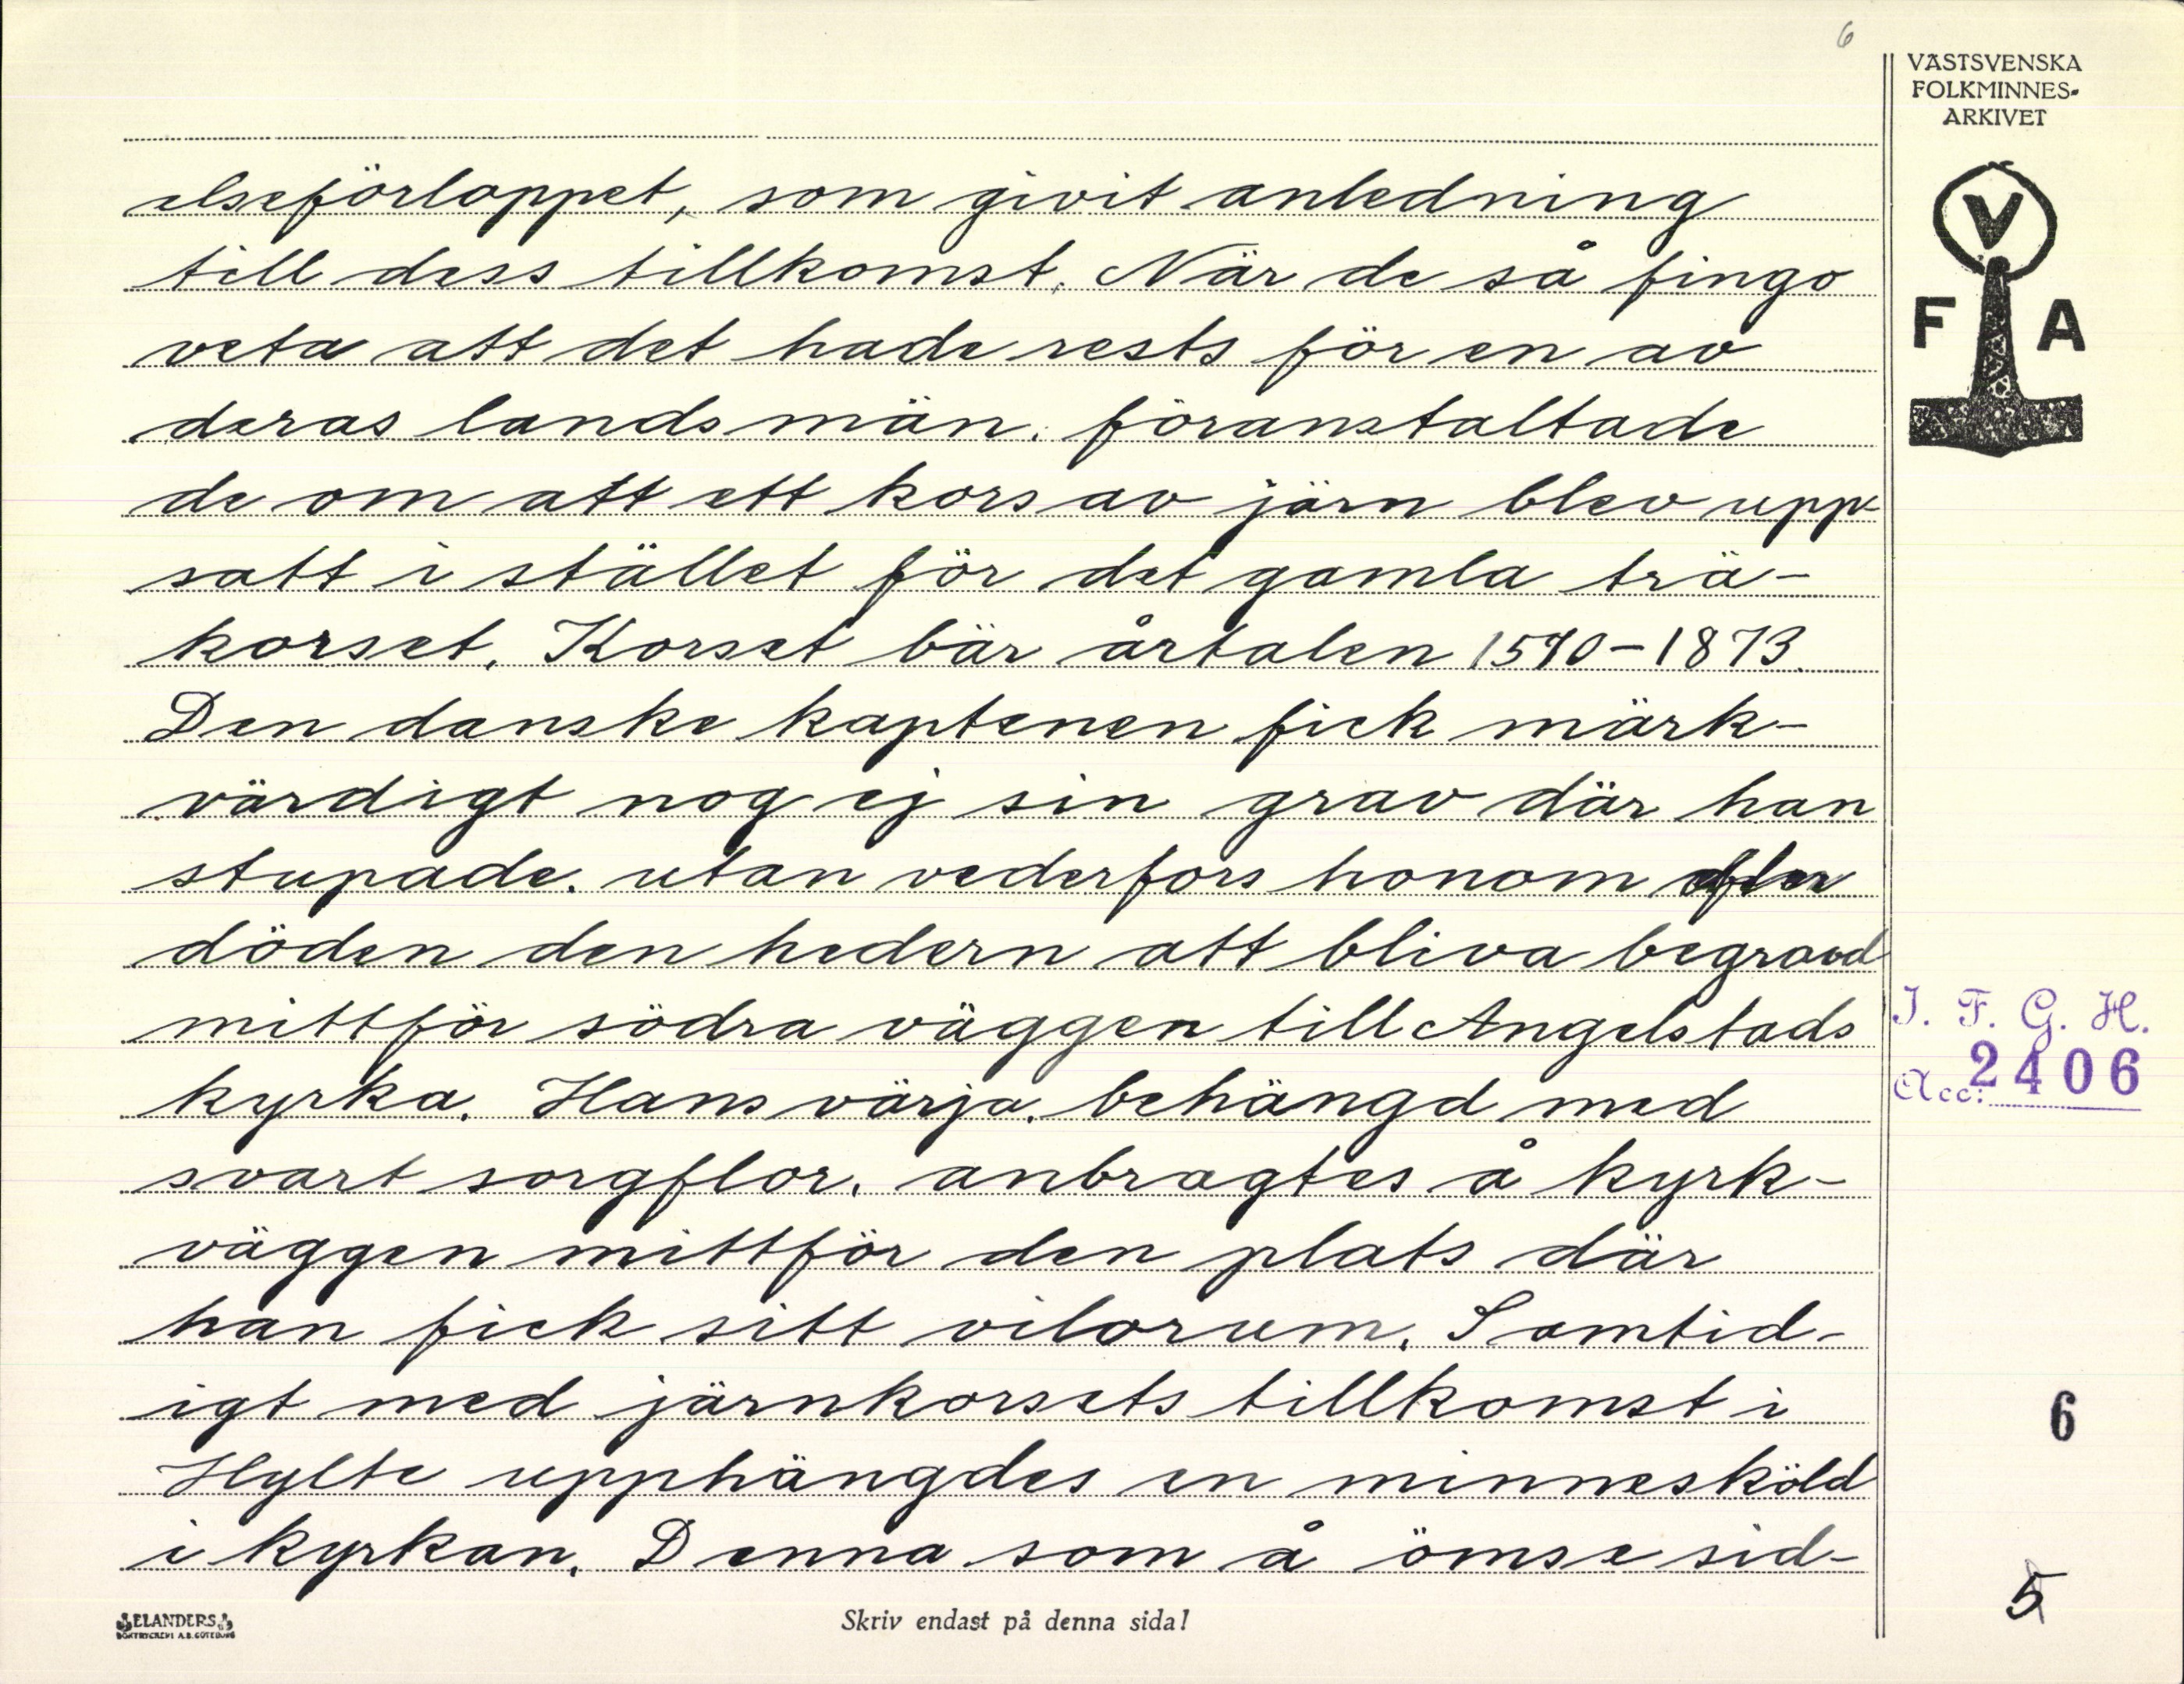 6
VÄSTSVENSKA
FOLKMINNES-
ARKIVET
V
F A
elseförloppet, som givit anledning
till dess tillkomst. När de så fingo
veta att det hade rests för en av
deras landsmän. föranstaltade
de om att ett kors av järn blev upp-
satt i stället för det gamla trä-
korset. Korset bär årtalen 1570-1873.
Den danske kaptenen fick märk-
värdigt nog ej sin grav där han
stupade. utan vederfors honom efter
döden den hedern att bliva begravd
mittför södra väggen till Angelstads
kyrka. Hans värja. behängd med
svart sorgflor. anbragtes å kyrk-
väggen mittför den plats där
han fick sitt vilorum. Samtid-
igt med järnkorsets tillkomst i
Hylte upphängdes en minnesköld
i kyrkan. Denna som å ömse sid-
I. F. G. H.
Acc: 2406
6
5
ELANDERS
BOKTRYCKERI A.B. GÖTEBORG
Skriv endast på denna sida!